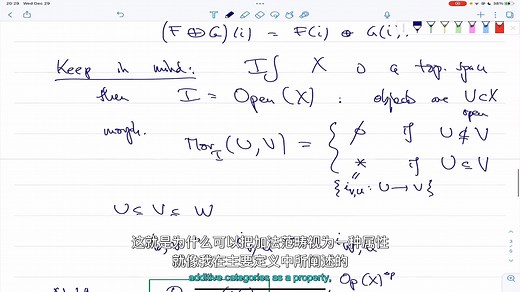 20:29 Wed Dec 29
38%
(F ⊕ G)(i) = F(i) ⊕ G(i).
Keep in mind: If X is a top. space
then I = Open(X) : objects are U⊂X
open
morph. Mor_I (U, V) = { ∅ if U ⊄ V
* if U ⊆ V
{i_{V,U}: U → V}
U ⊆ V ⊆ W
这就是为什么可以把加法范畴视为一种属性
就像我在主要定义中所阐述的
additive categories as a property,
Op(X)^op